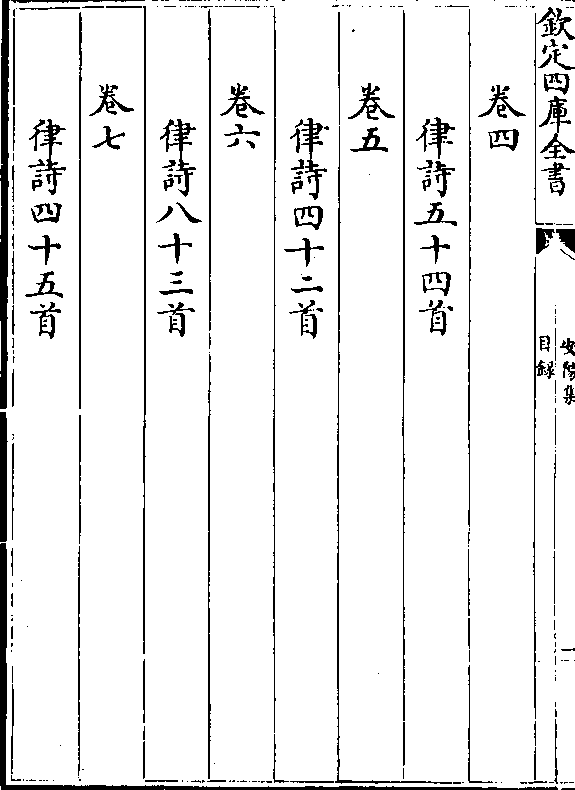 欽定四庫全書
安陽集
目録
一
卷四
律詩五十四首
卷五
律詩四十二首
卷六
律詩八十三首
卷七
律詩四十五首